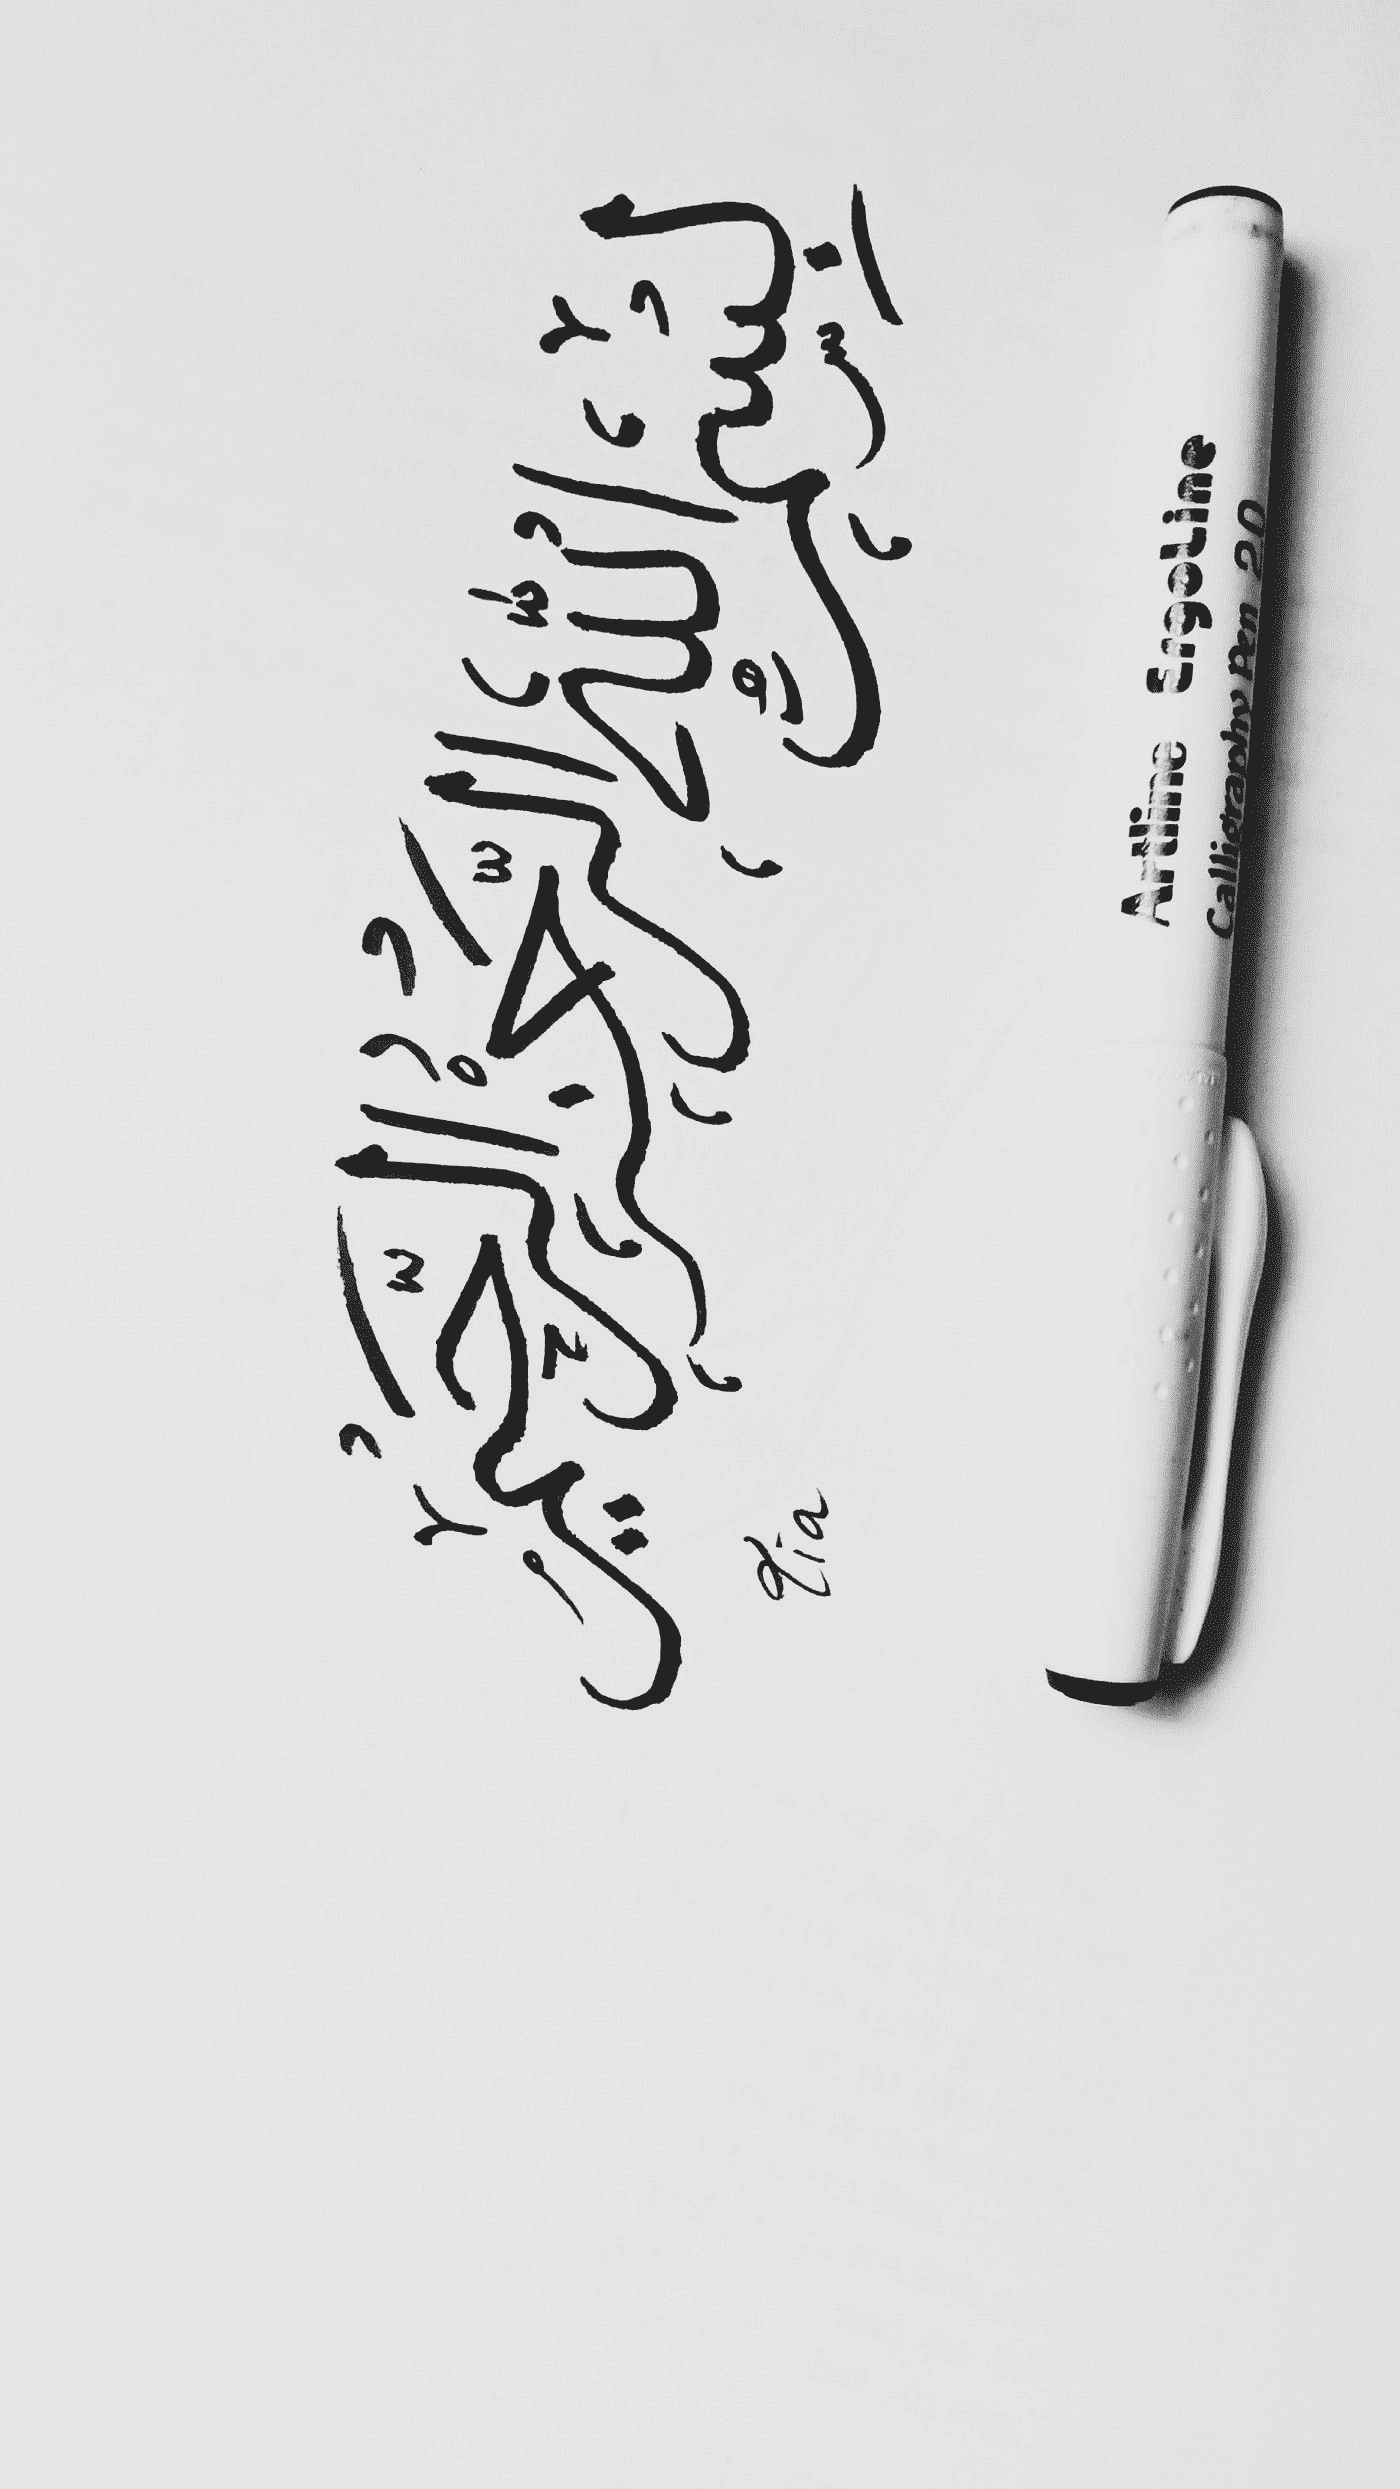 بِسْمِ اللّٰهِ الرَّحْمٰنِ الرَّحِيْمِ
Zia
Artline ErgoLine
Calligraphy Pen 2.0